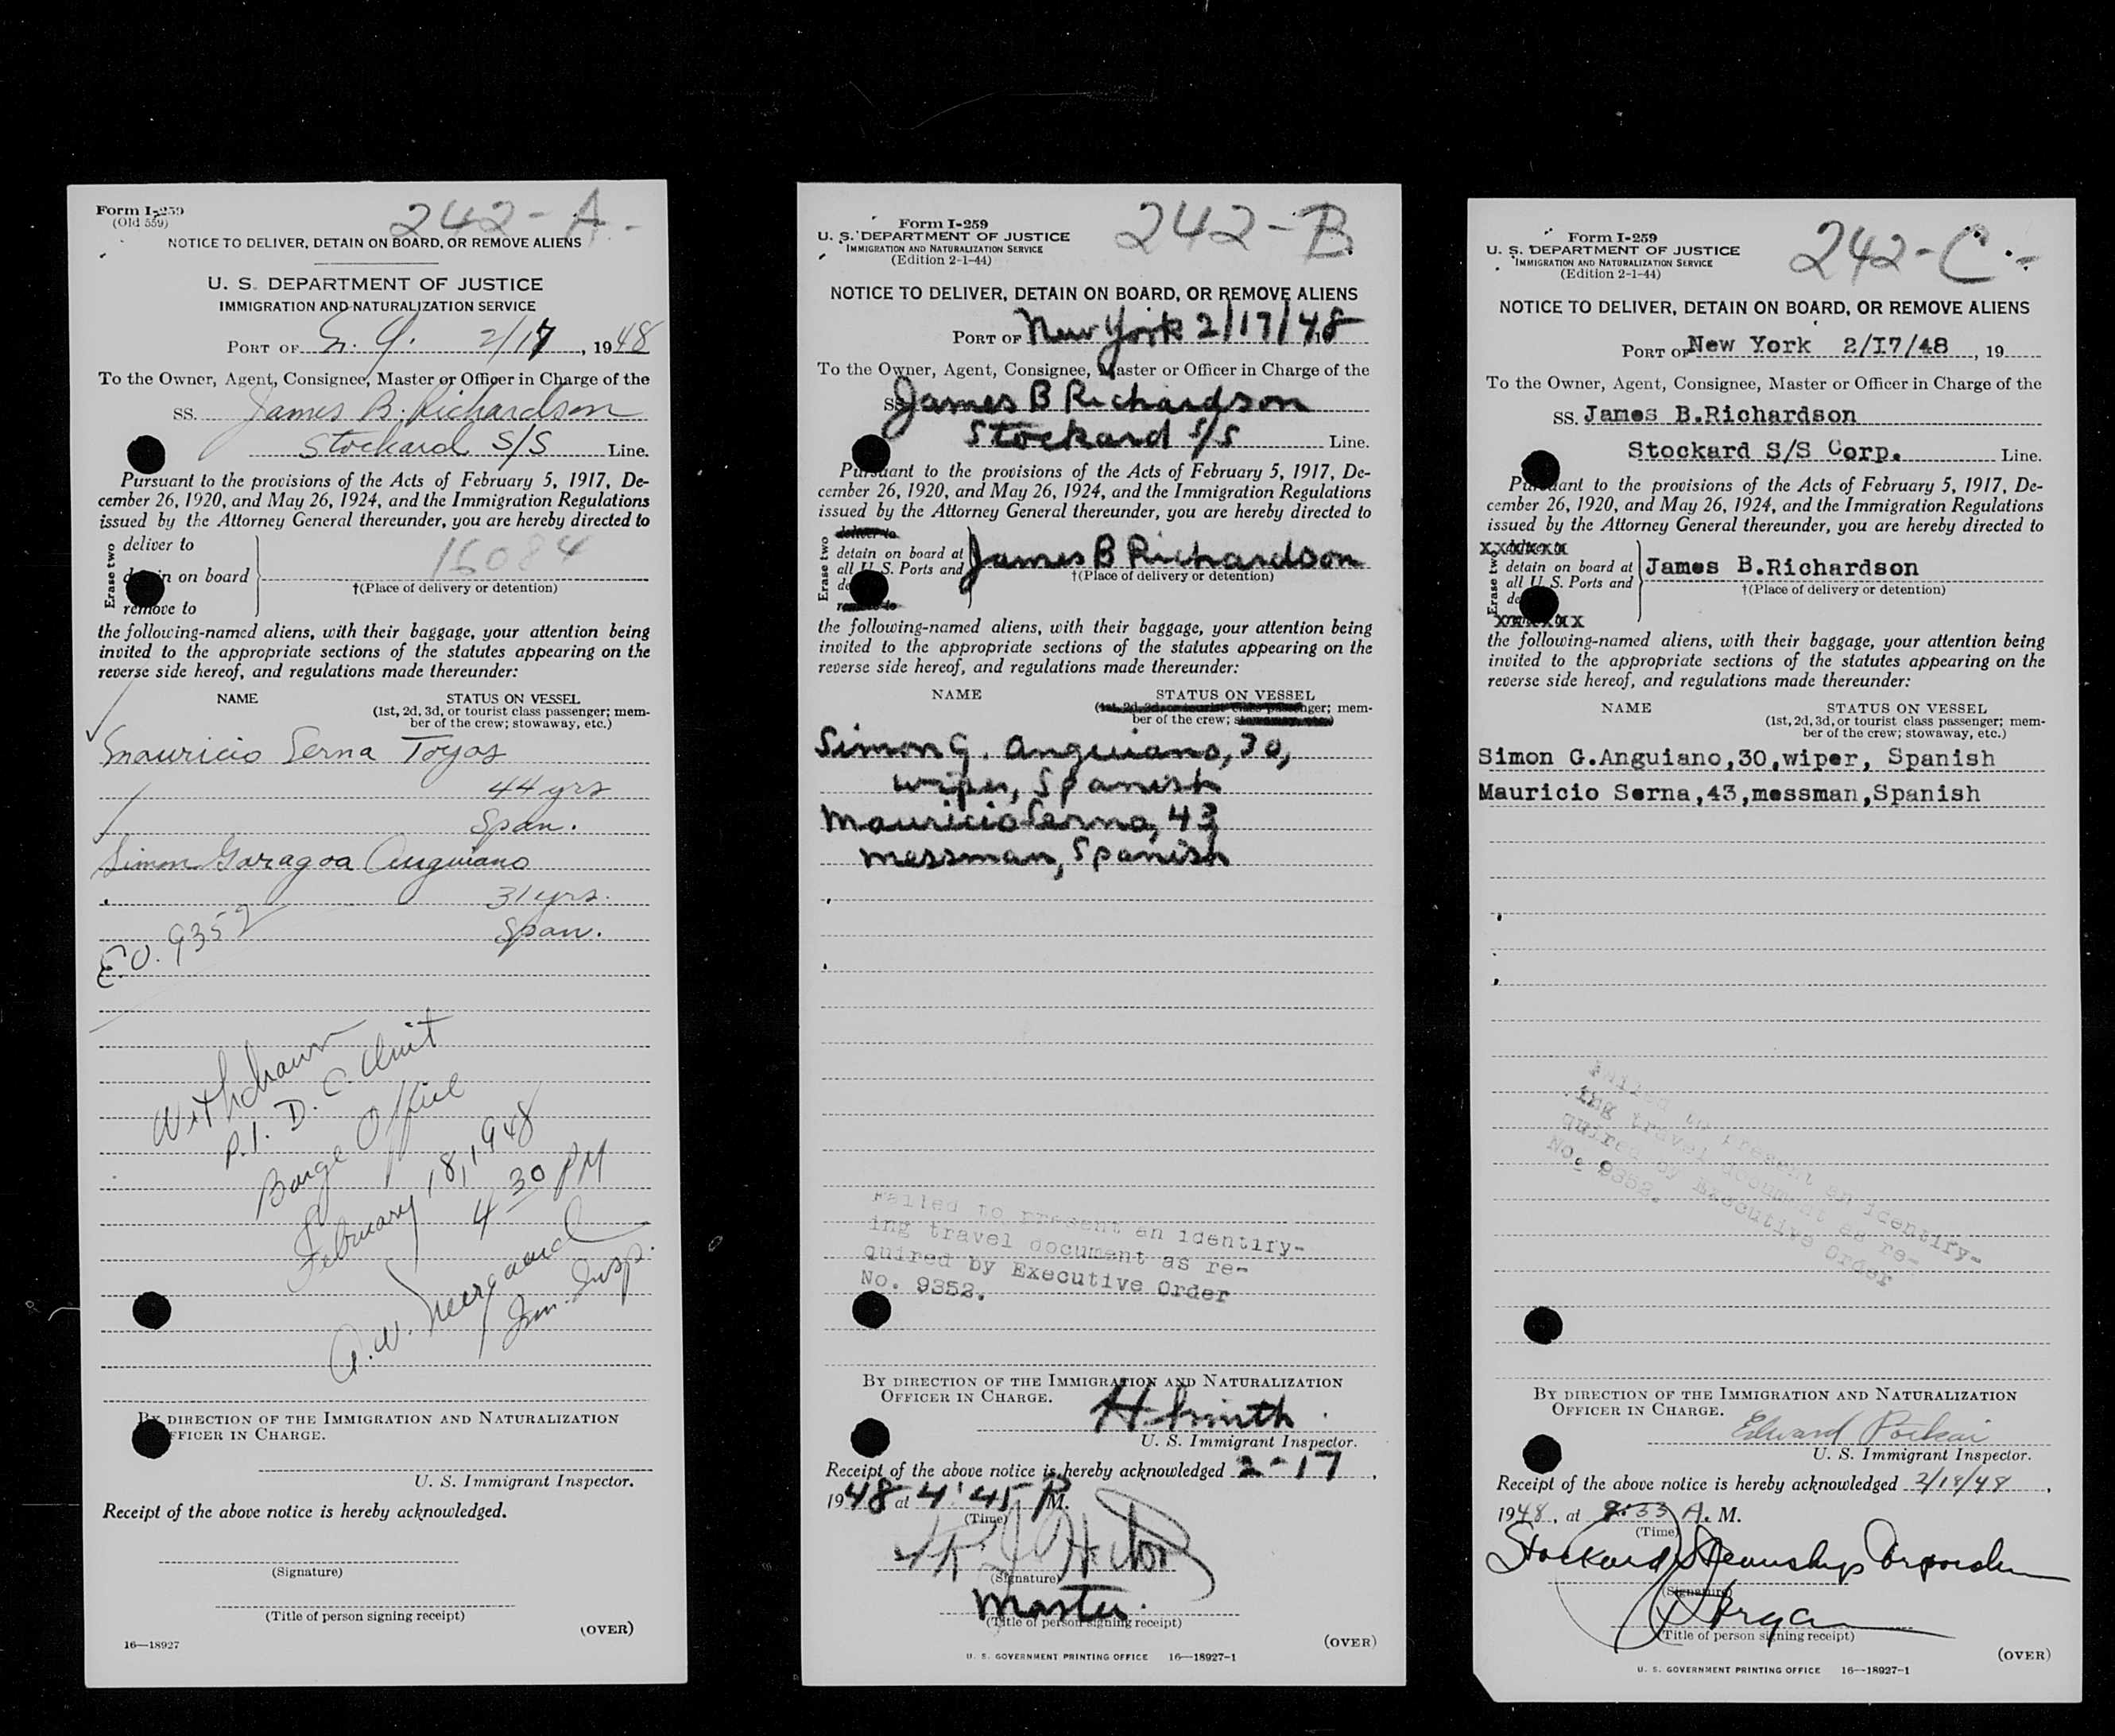 Form I-259
(Old 559)
242-A-
NOTICE TO DELIVER, DETAIN ON BOARD, OR REMOVE ALIENS
U. S. DEPARTMENT OF JUSTICE
IMMIGRATION AND NATURALIZATION SERVICE
PORT OF N. Y. 2/17, 1948
To the Owner, Agent, Consignee, Master or Officer in Charge of the
SS. James B. Richardson
Stockard S/S Line.
Pursuant to the provisions of the Acts of February 5, 1917, De-
cember 26, 1920, and May 26, 1924, and the Immigration Regulations
issued by the Attorney General thereunder, you are hereby directed to
Erase two
deliver to
detain on board
remove to
16084
†(Place of delivery or detention)
the following-named aliens, with their baggage, your attention being
invited to the appropriate sections of the statutes appearing on the
reverse side hereof, and regulations made thereunder:
NAME STATUS ON VESSEL
(1st, 2d, 3d, or tourist class passenger; mem-
ber of the crew; stowaway, etc.)
Mauricio Serna Toyos
44 yrs
Span.
Simon Garagoa Anguiano
31 yrs.
Span.
E.O. 9352
Withdrawn
P.I. D.C. Unit
Barge Office
February 18, 1948
4 30 PM
Imm. Insp.
BY DIRECTION OF THE IMMIGRATION AND NATURALIZATION
OFFICER IN CHARGE.
U. S. Immigrant Inspector.
Receipt of the above notice is hereby acknowledged.
(Signature)
(Title of person signing receipt)
(OVER)
16—18927
Form I-259
U. S. DEPARTMENT OF JUSTICE
IMMIGRATION AND NATURALIZATION SERVICE
(Edition 2-1-44)
242-B
NOTICE TO DELIVER, DETAIN ON BOARD, OR REMOVE ALIENS
PORT OF New York 2/17/48
To the Owner, Agent, Consignee, Master or Officer in Charge of the
SS James B Richardson
Stockard S/S Line.
Pursuant to the provisions of the Acts of February 5, 1917, De-
cember 26, 1920, and May 26, 1924, and the Immigration Regulations
issued by the Attorney General thereunder, you are hereby directed to
Erase two
deliver to
detain on board at
all U. S. Ports and
remove to
James B Richardson
†(Place of delivery or detention)
the following-named aliens, with their baggage, your attention being
invited to the appropriate sections of the statutes appearing on the
reverse side hereof, and regulations made thereunder:
NAME STATUS ON VESSEL
(1st, 2d, 3d, or tourist class passenger; mem-
ber of the crew; stowaway, etc.)
Simon G. Anguiano, 30,
wiper, Spanish
Mauricio Serna, 43
messman, Spanish
Failed to present an identify-
ing travel document as re-
quired by Executive Order
No. 9352.
BY DIRECTION OF THE IMMIGRATION AND NATURALIZATION
OFFICER IN CHARGE.
H Smith
U. S. Immigrant Inspector.
Receipt of the above notice is hereby acknowledged 2-17,
1948 at 4:45 P M.
(Time)
(Signature)
Master.
(Title of person signing receipt)
(OVER)
U. S. GOVERNMENT PRINTING OFFICE 16—18927-1
Form I-259
U. S. DEPARTMENT OF JUSTICE
IMMIGRATION AND NATURALIZATION SERVICE
(Edition 2-1-44)
242-C-
NOTICE TO DELIVER, DETAIN ON BOARD, OR REMOVE ALIENS
PORT OF New York 2/I7/48, 19
To the Owner, Agent, Consignee, Master or Officer in Charge of the
SS. James B.Richardson
Stockard S/S Corp. Line.
Pursuant to the provisions of the Acts of February 5, 1917, De-
cember 26, 1920, and May 26, 1924, and the Immigration Regulations
issued by the Attorney General thereunder, you are hereby directed to
Erase two
detain on board at
all U. S. Ports and
James B.Richardson
†(Place of delivery or detention)
the following-named aliens, with their baggage, your attention being
invited to the appropriate sections of the statutes appearing on the
reverse side hereof, and regulations made thereunder:
NAME STATUS ON VESSEL
(1st, 2d, 3d, or tourist class passenger; mem-
ber of the crew; stowaway, etc.)
Simon G.Anguiano,30,wiper, Spanish
Mauricio Serna,43,messman,Spanish
Failed to present an identify-
ing travel document as re-
quired by Executive Order
No. 9352.
BY DIRECTION OF THE IMMIGRATION AND NATURALIZATION
OFFICER IN CHARGE.
Edward
U. S. Immigrant Inspector.
Receipt of the above notice is hereby acknowledged 2/18/48,
1948, at 9:33 A. M.
(Time)
Stockard Steamship Corporation
(Signature)
(Title of person signing receipt)
(OVER)
U. S. GOVERNMENT PRINTING OFFICE 16—18927-1